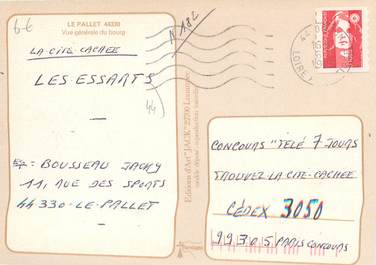 6€
LE PALLET 44330
Vue générale du bourg
A 18L
LA CITE-CACHEE
LES ESSARTS
44
44
LOIRE
EXP= BOUSSEAU JACKY
11, RUE DES SPORTS
44330-LE-PALLET
Editions d'Art "JACK"
CONCOURS "TÉLÉ 7 JOURS
TROUVEZ LA CITE-CACHEE
CÉDEX 3050
99305 PARIS CONCOURS